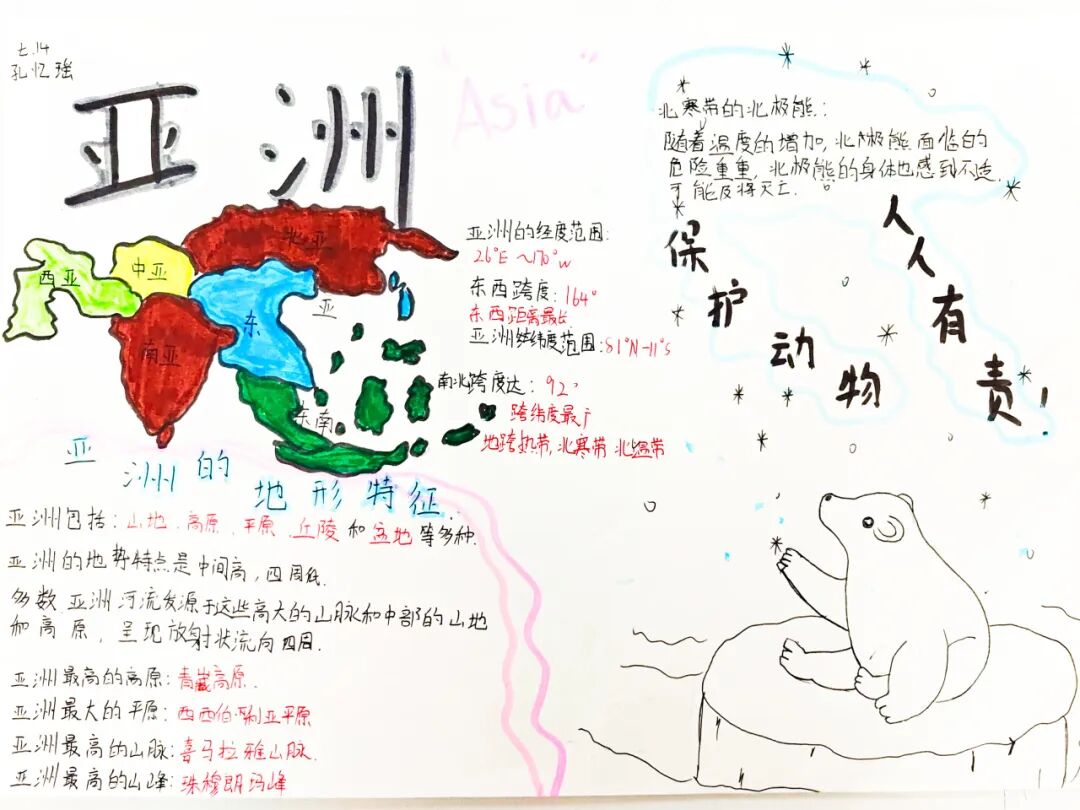 七.14
孔忆瑶
亚洲
"Asia"
北亚
中亚
西亚
东
亚
南亚
东南
亚洲的经度范围:
26°E~170°W
东西跨度:164°
东西距离最长
亚洲纬度范围:81°N-11°S
南北跨度达:92°
跨纬度最广
地跨热带,北寒带 北温带
亚洲的地形特征
亚洲包括:山地、高原、平原、丘陵和盆地等多种.
亚洲的地势特点是中间高,四周低.
多数亚洲河流发源于这些高大的山脉和中部的山地
和高原,呈现放射状流向四周.
亚洲最高的高原:青藏高原.
亚洲最大的平原:西西伯利亚平原
亚洲最高的山脉:喜马拉雅山脉.
亚洲最高的山峰:珠穆朗玛峰
北寒带的北极熊:
随着温度的增加,北极熊面临的
危险重重,北极熊的身体也感到不适.
可能及将灭亡.
保护动物
人人有责!